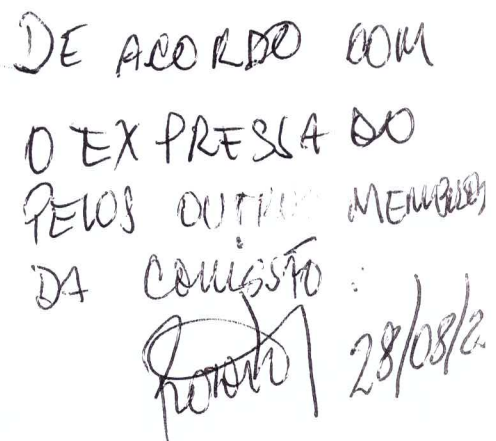 DE ACORDO COM
O EXPRESSADO
PELOS OUTROS MEMBROS
DA COMISSÃO.
28/08/2